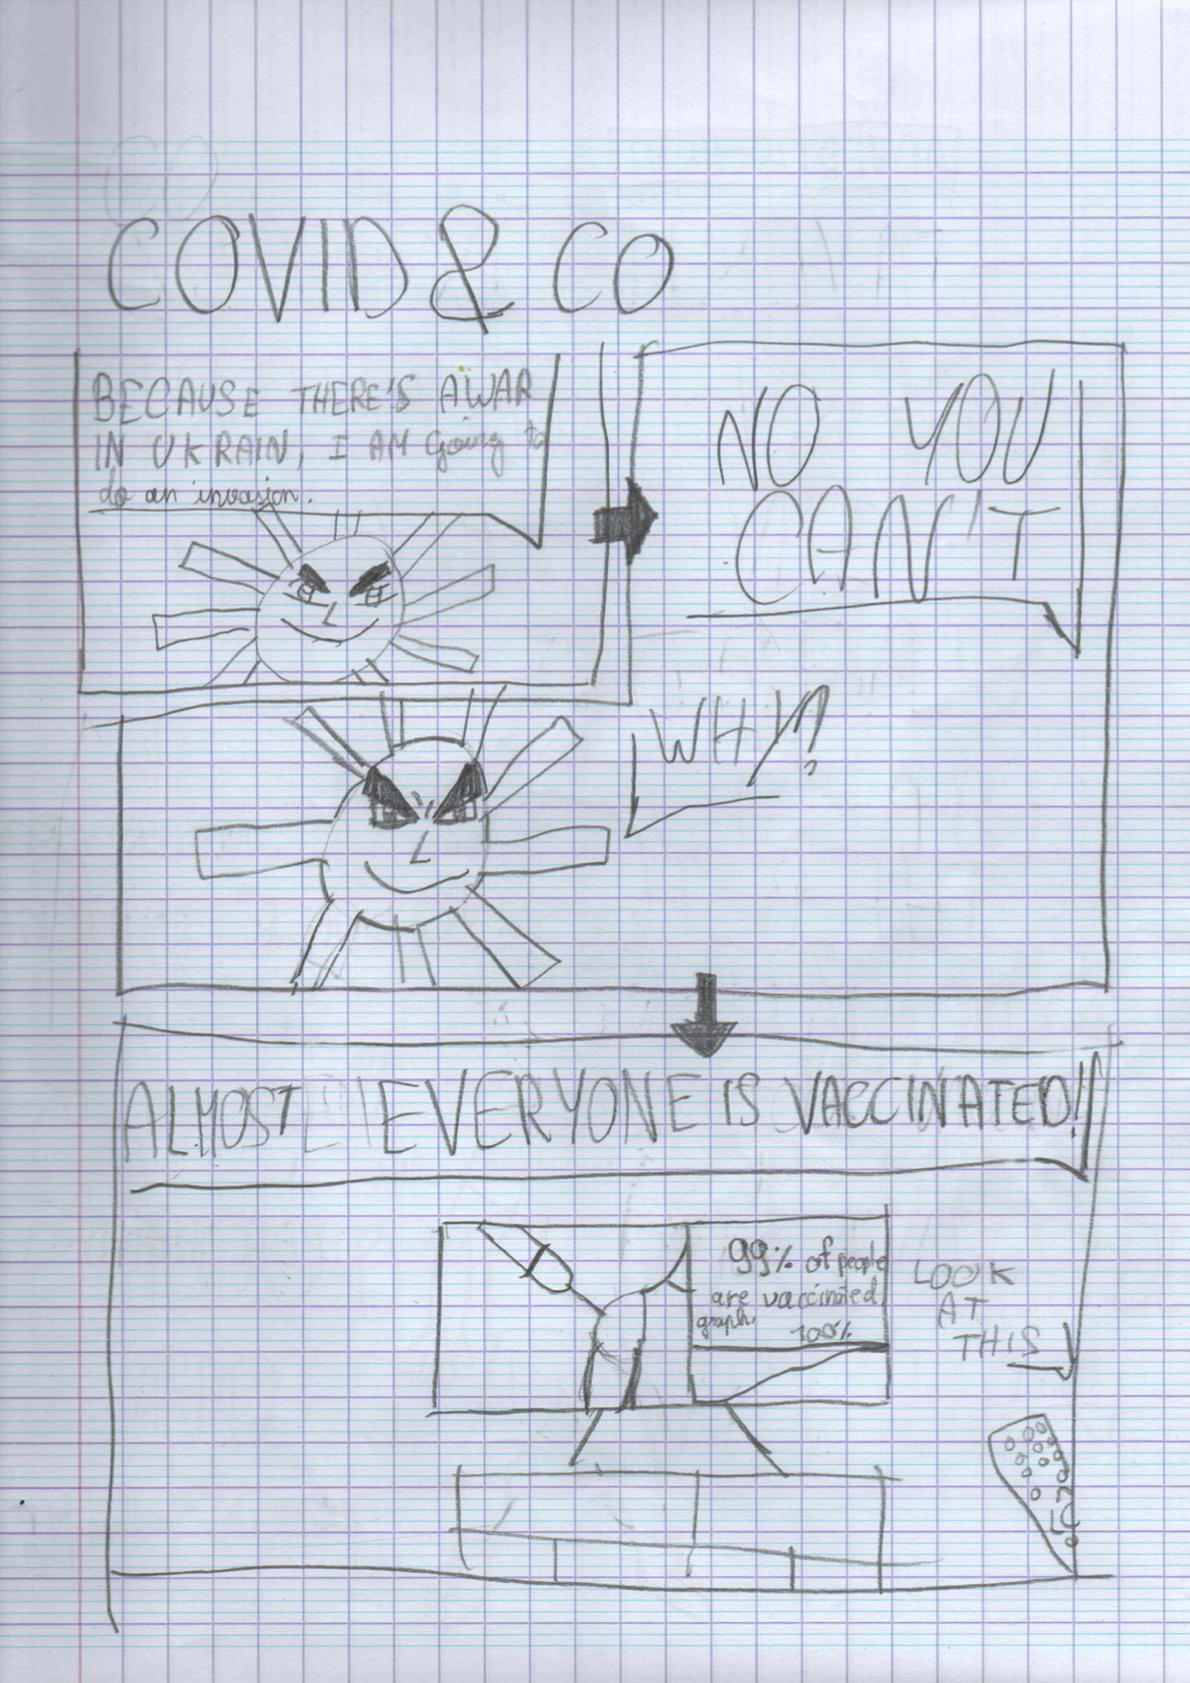 COVID & CO
BECAUSE THERE'S A WAR
IN UKRAIN, I AM going to
do an invasion.
NO YOU
CAN'T
WHY?
ALMOST EVERYONE IS VACCINATED!
99% of people
are vaccinated
graph.
100%
LOOK
AT
THIS